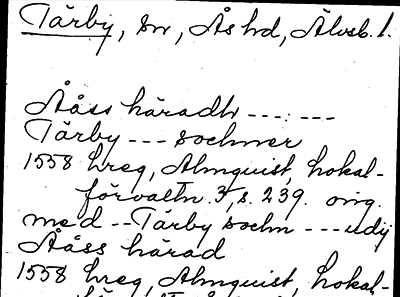 Tärby, sn, Ås hd, Älvsb. l.
Ååss häradh ---:---
Tärby --- sochner
1558 hreg, Almquist, Lokal-
förvaltn. 3, s. 239. orig.
med -- Tärby sochn --- udij
Åååss härad
1558 hreg, Almquist, Lokal-